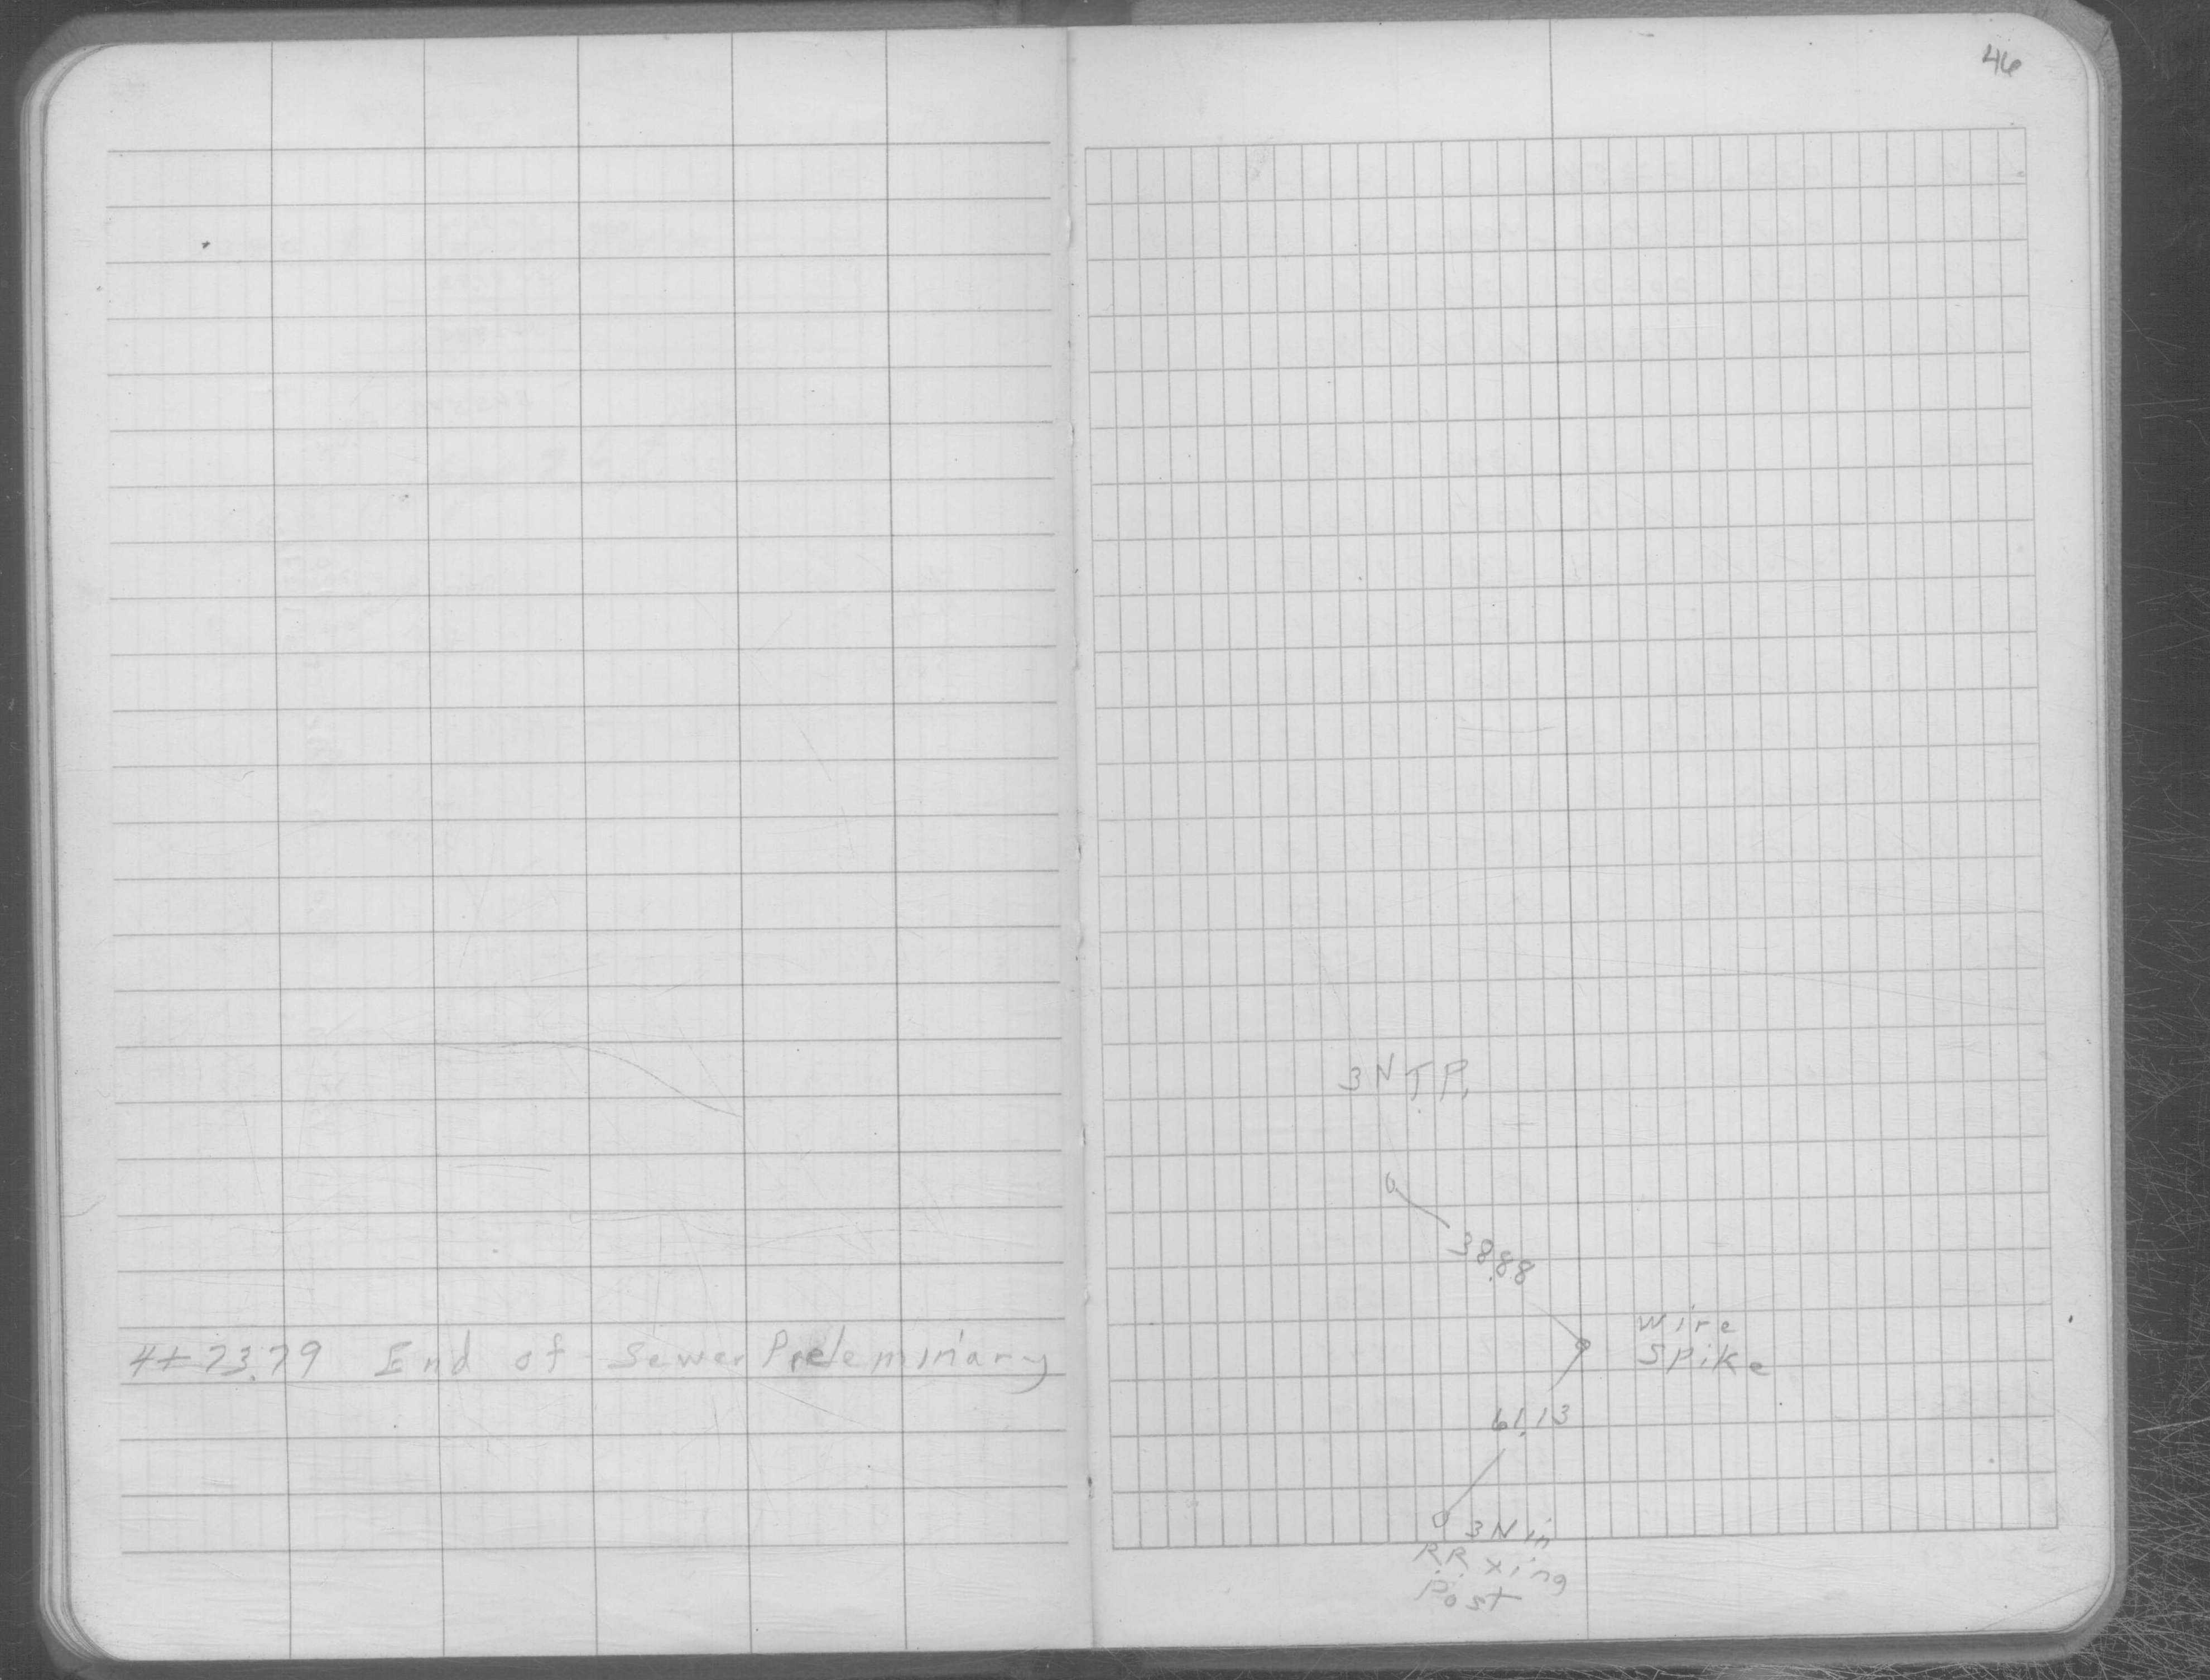 46
4+73.79 End of Sewer Preleminary
3 N T.P.
38.88
Wire
Spike
61.13
3 N in
R.R. Xing
Post